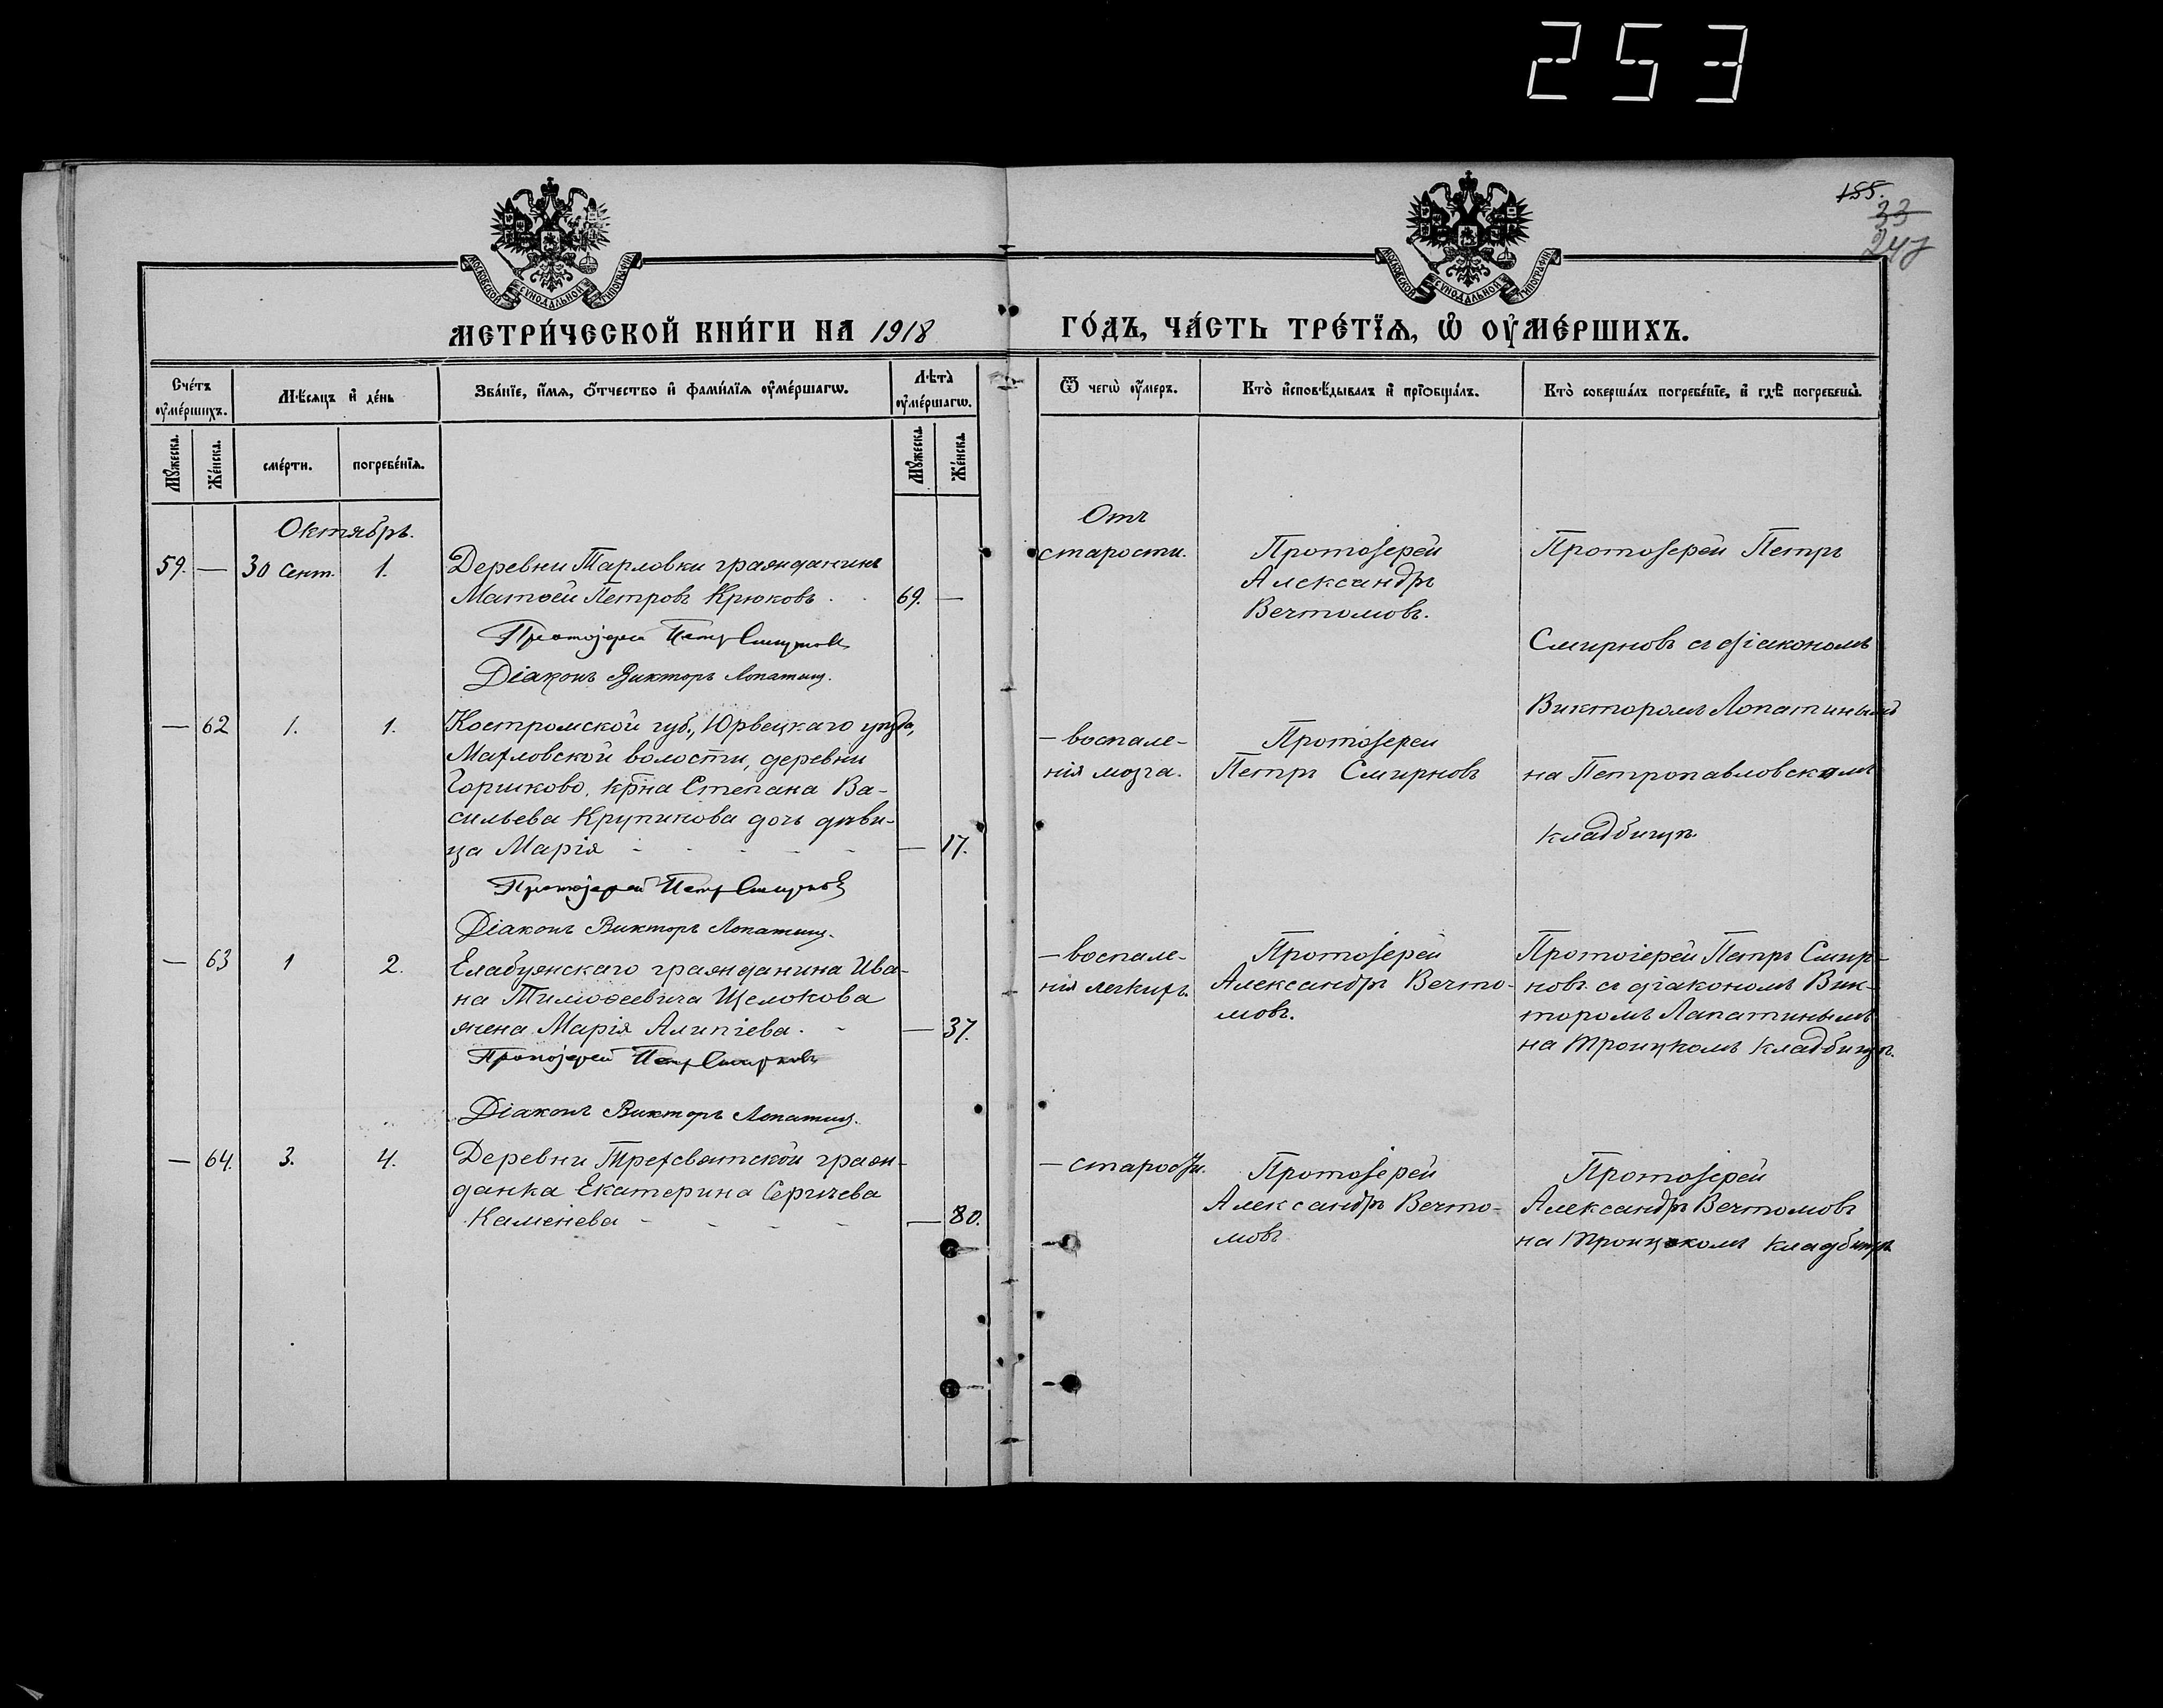 253
155.
33
247
МОСКОВСКОЙ СѴНОДАЛЬНОЙ ТИПОГРАФІИ
МОСКОВСКОЙ СѴНОДАЛЬНОЙ ТИПОГРАФІИ
МЕТРИ́ЧЕСКОЙ КНИ́ГИ НА 1918 ГО́ДЪ, ЧА́СТЬ ТРЕ́ТІѦ, Ѡ҆ ОУ҆МЕ́РШИХЪ.
Сче́тъ оу҆ме́ршихъ.
Мѣ́сяцъ и҆ де́нь
Зва́нїе, и҆́мѧ, ѻ҆́тчество и҆ фами́лїѧ оу҆ме́ршагѡ.
Лѣта̀ оу҆ме́ршагѡ.
Ѿ чегѡ̀ оу҆́меръ.
Кто̀ и҆сповѣ́дывалъ и҆ прїѻбща́лъ.
Кто̀ соверша́лъ погребе́нїе, и҆ гдѣ̀ погребены̀.
Мꙋ́жеска.
Же́нска.
сме́рти.
погребе́нїѧ.
Мꙋ́жеска.
Же́нска.
Октябрь.
59. — 30 Сент. 1.
Деревни Тарловки гражданинъ
Матѳей Петровъ Крюковъ. 69. —
Протоіерей Петр Смирновъ
Діаконъ Викторъ Лопатинъ.
Отъ
старости.
Протоіерей
Александръ
Вечтомовъ.
Протоіерей Петръ
Смирновъ съ діакономъ
Викторомъ Лопатинымъ
на Петропавловскомъ
кладбищѣ.
— 62 1. 1.
Костромской губ., Юрвецкаго уѣзда,
волости, деревни
Горшково, кр̅на Степана Ва-
сильева Крупинова дочь дѣви-
ца Марія - - - - — 17.
Протоіерей Петр Смирновъ
Діаконъ Викторъ Лопатинъ.
— воспале-
нія мозга.
Протоіерей
Петръ Смирновъ
— 63 1 2.
Елабужскаго гражданина Ива-
на Тимоѳеевича Щелокова
жена Марія Алипіева. - — 37.
Протоіерей Петр Смирновъ
Діаконъ Викторъ Лопатинъ.
— воспале-
нія легкихъ.
Протоіерей
Александръ Вечто-
мовъ.
Протоіерей Петръ Смир-
новъ съ діакономъ Вик-
торомъ Лапатинымъ
на Троицкомъ кладбищѣ.
— 64. 3. 4.
Деревни Трехсвятской граж-
данка Екатерина Сергѣева
Каменева - - - - — 80.
— старости.
Протоіерей
Александръ Вечто-
мовъ
Протоіерей
Александръ Вечтомовъ
на Троицкомъ кладбищѣ